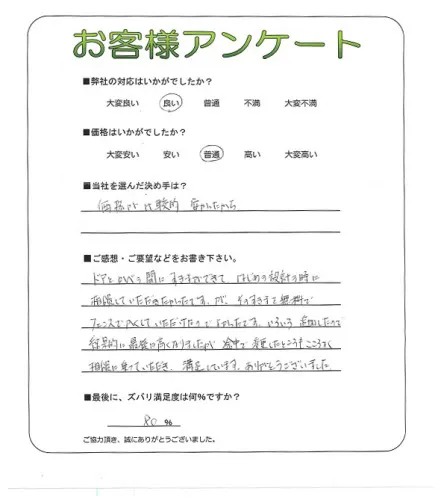 お客様アンケート
■弊社の対応はいかがでしたか？
大変良い 良い 普通 不満 大変不満
■価格はいかがでしたか？
大変安い 安い 普通 高い 大変高い
■当社を選んだ決め手は？
価格が比較的 安かったから
■ご感想・ご要望などをお書き下さい。
ドアと の間に すきまができて はじめの設計の時に
相談していただきたかったです。が、そのすきまを無料で
フェンスで していただけたので よかったです。いろいろ 追加したので
結果的に 高くなりましたが 途中で 変更したところも こころよく
相談に乗っていただき、満足しています。ありがとうございました
■最後に、ズバリ満足度は何％ですか？
80 %
ご協力頂き、誠にありがとうございました。